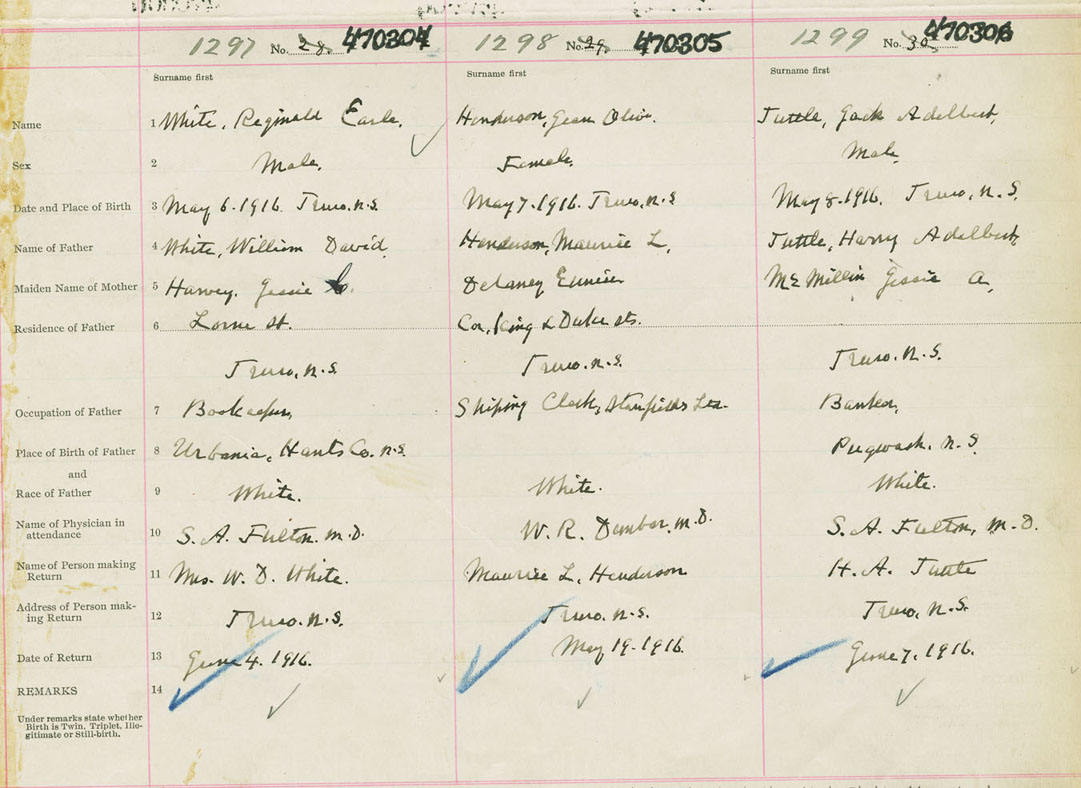 1297 No. 28. 470304 1298 No. 29. 470305 1299 No. 30. 470306
Surname first Surname first Surname first
Name 1 White, Reginald Earle. Henderson, Jean Olive. Tuttle, Jack Adelbert,
Sex 2 Male. Female. Male,
Date and Place of Birth 3 May 6-1916. Truro. N.S. May 7-1916. Truro, N.S May 8-1916. Truro, N.S.
Name of Father 4 White, William David, Henderson, Maurice L, Tuttle, Harry Adelbert,
Maiden Name of Mother 5 Harvey, Jessie Delaney Eunice McMillin Jessie A,
Residence of Father 6 Lorne St. Cor, King & Duke sts.
Truro, N.S Truro. N.S. Truro. N.S.
Occupation of Father 7 Bookeeper, Shiping Clerk, Stanfields Banker,
Place of Birth of Father 8 Urbania, Hants Co. N.S. Pugwash. N.S.
and
Race of Father 9 White. White. White.
Name of Physician in
attendance 10 S. A. Fulton. M.D. W. R. Dunbar, M.D. S. A. Fulton, M.D.
Name of Person making
Return 11 Mrs. W. D. White. Maurice L, Henderson H. A. Tuttle
Address of Person mak-
ing Return 12 Truro. N.S. Truro. N.S. Truro, N.S.
Date of Return 13 June 4. 1916. May 19-1916. June 7, 1916.
REMARKS 14
Under remarks state whether
Birth is Twin, Triplet, Ille-
gitimate or Still-birth.